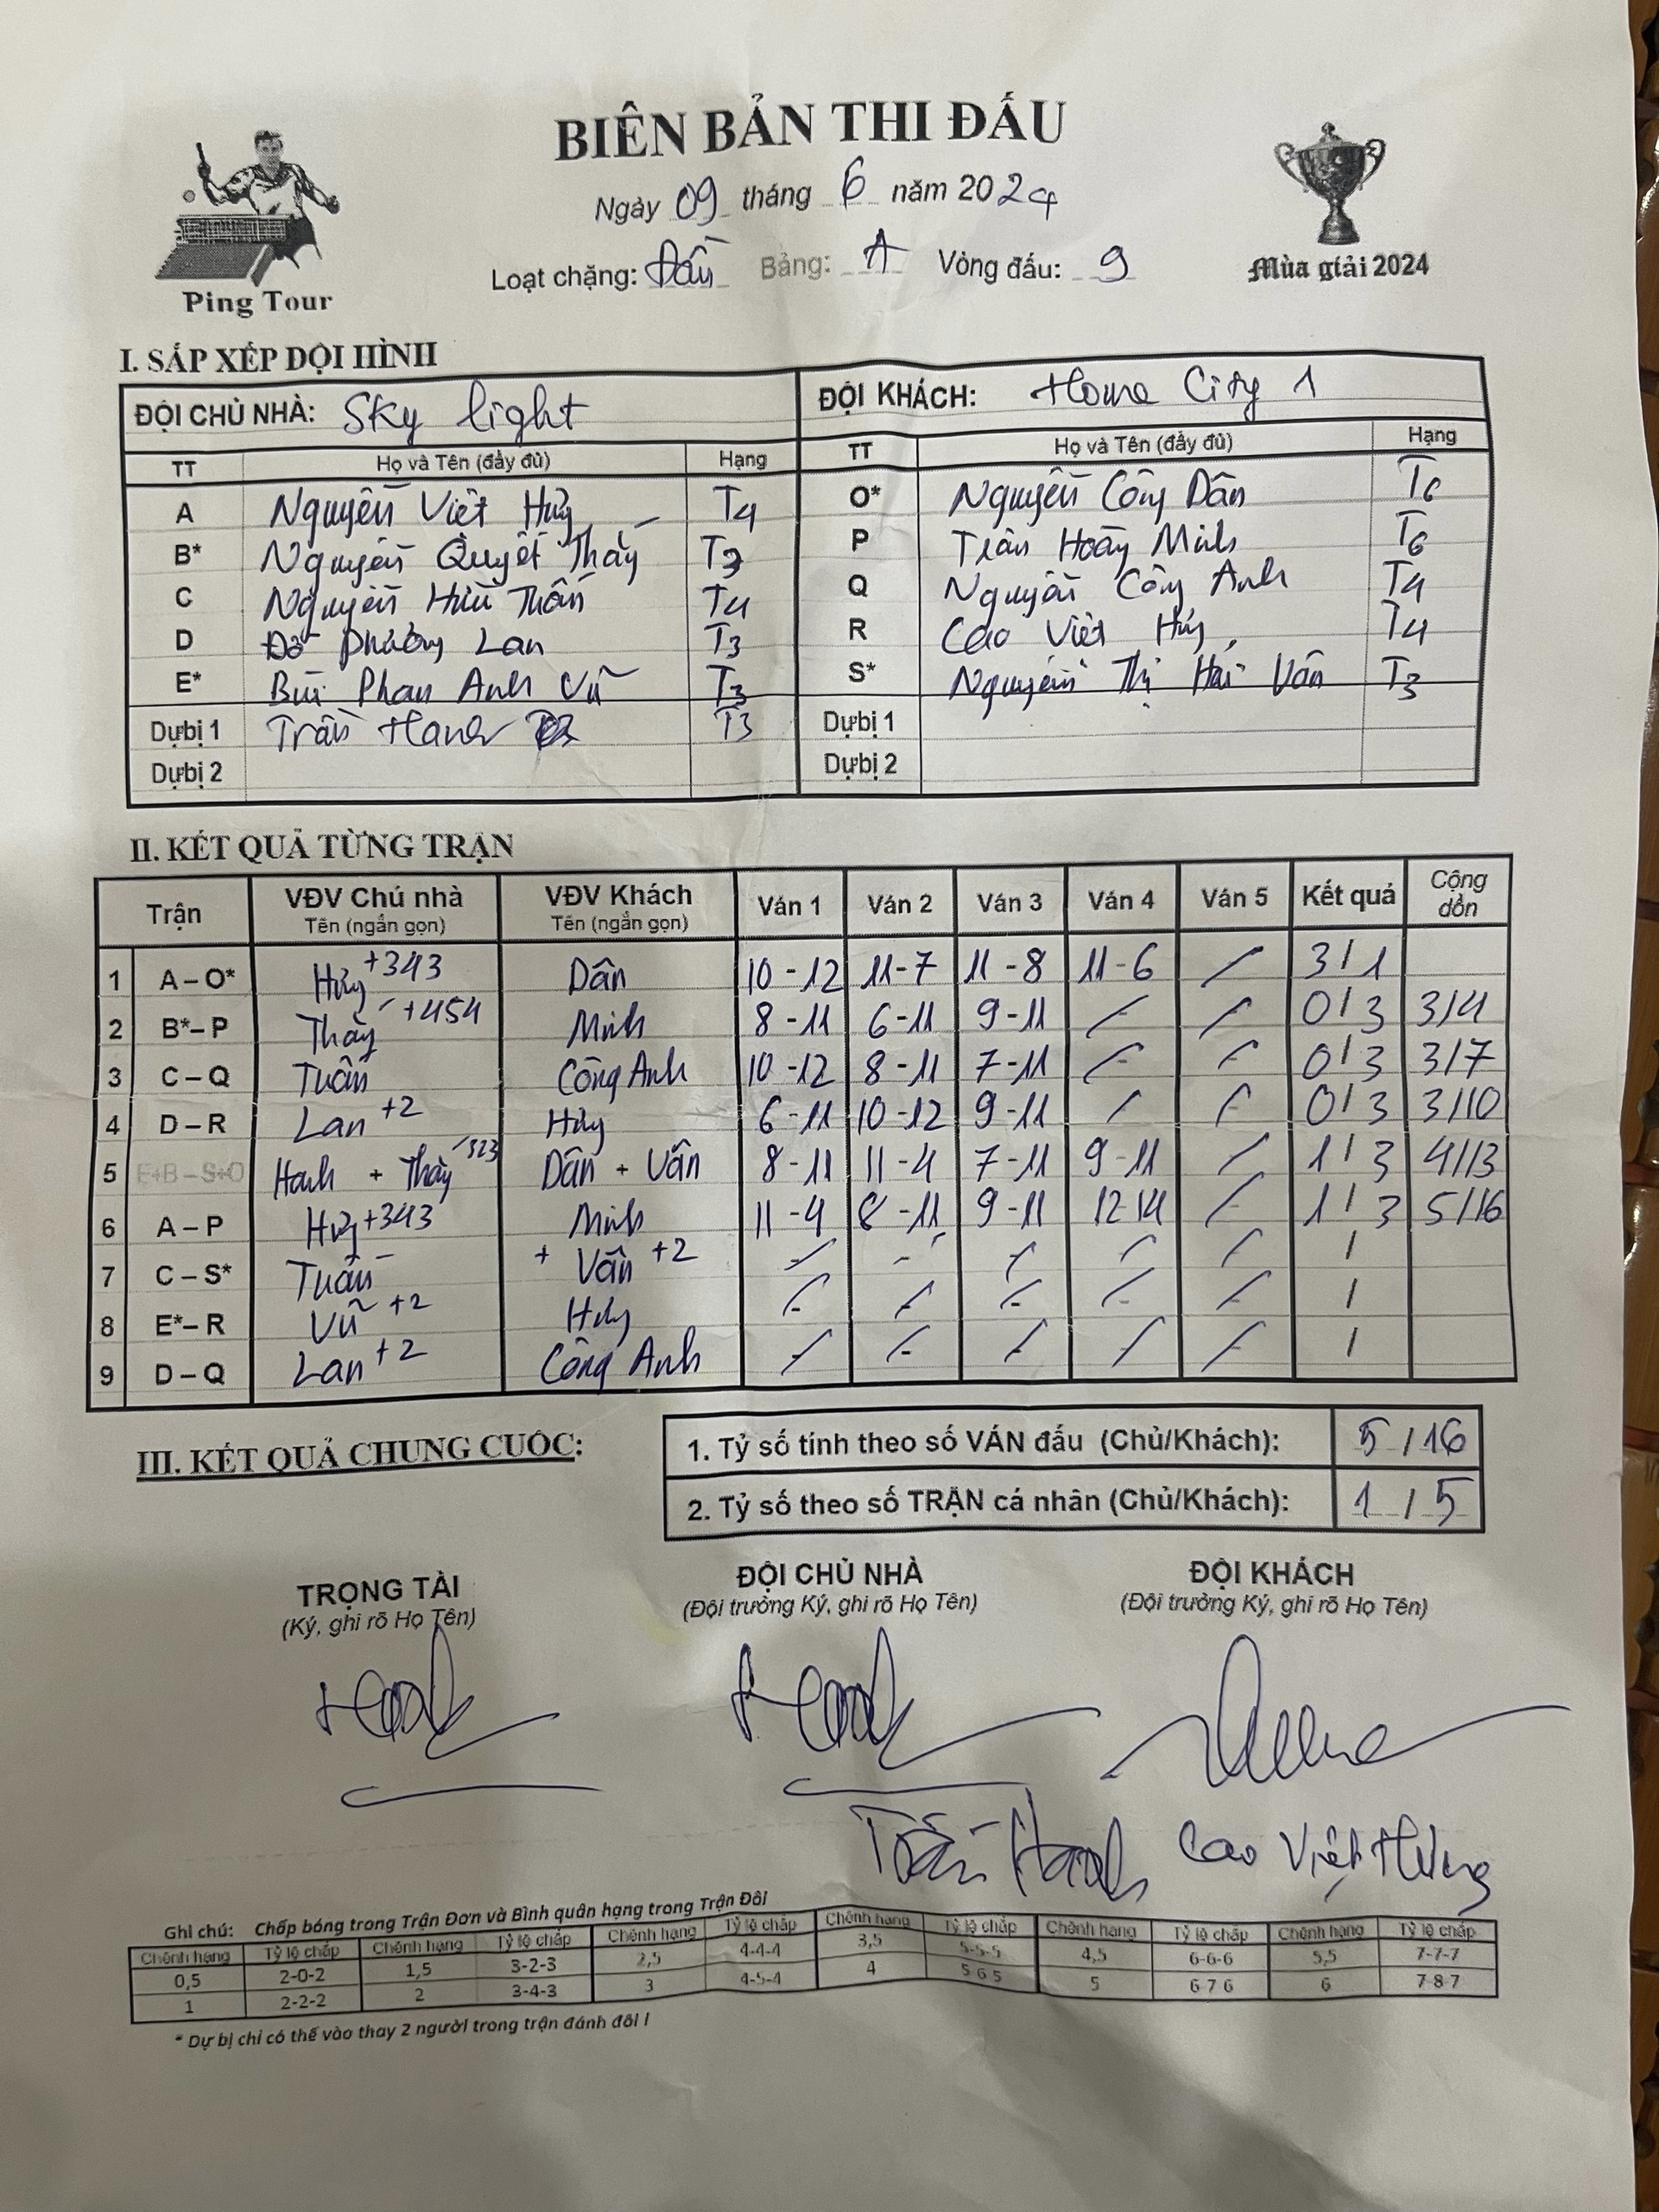 BIÊN BẢN THI ĐẤU
Ngày 09 tháng 6 năm 2024
Loạt chặng: Đấu Bảng: A Vòng đấu: 9
Ping Tour
Mùa giải 2024
I. SẮP XẾP ĐỘI HÌNH
ĐỘI CHỦ NHÀ: Sky light ĐỘI KHÁCH: Home City 1
TT Họ và Tên (đầy đủ) Hạng TT Họ và Tên (đầy đủ) Hạng
A Nguyễn Việt T4 O* Nguyễn Công Dân T6
B* Nguyễn Quyết Thắng T3 P Trần Hoàng Minh T6
C Nguyễn Hữu Tuấn T4 Q Nguyễn Công Anh T4
D Đỗ Phương Lan T3 R Cao Việt Hưng T4
E* Bùi Phan Anh Vũ T3 S* Nguyễn Thị Hải Vân T3
Dự bị 1 Trần Hanh T3 Dự bị 1
Dự bị 2 Dự bị 2
II. KẾT QUẢ TỪNG TRẬN
Trận VĐV Chủ nhà Tên (ngắn gọn) VĐV Khách Tên (ngắn gọn) Ván 1 Ván 2 Ván 3 Ván 4 Ván 5 Kết quả Cộng dồn
1 A – O* +343 Dân 10-12 11-7 11-8 11-6 / 3/1
2 B* – P Thắng +454 Minh 8-11 6-11 9-11 / / 0/3 3/4
3 C – Q Tuấn Công Anh 10-12 8-11 7-11 / / 0/3 3/7
4 D – R Lan +2 Hưng 6-11 10-12 9-11 / / 0/3 3/10
5 E+B – S+O Hanh + Thắng 323 Dân + Vân 8-11 11-4 7-11 9-11 / 1/3 4/13
6 A – P +343 Minh 11-4 8-11 9-11 12-14 / 1/3 5/16
7 C – S* Tuấn + Vân +2 / / / / / /
8 E* – R Vũ +2 Hưng / / / / / /
9 D – Q Lan +2 Công Anh / / / / / /
III. KẾT QUẢ CHUNG CUỘC:
1. Tỷ số tính theo số VÁN đấu (Chủ/Khách): 5/16
2. Tỷ số theo số TRẬN cá nhân (Chủ/Khách): 1/5
TRỌNG TÀI ĐỘI CHỦ NHÀ ĐỘI KHÁCH
(Ký, ghi rõ Họ Tên) (Đội trưởng Ký, ghi rõ Họ Tên) (Đội trưởng Ký, ghi rõ Họ Tên)
Trần Hanh Cao Việt Hưng
Ghi chú: Chấp bóng trong Trận Đơn và Bình quân hạng trong Trận Đôi
Chênh hạng Tỷ lệ chấp Chênh hạng Tỷ lệ chấp Chênh hạng Tỷ lệ chấp Chênh hạng Tỷ lệ chấp Chênh hạng Tỷ lệ chấp Chênh hạng Tỷ lệ chấp
0,5 2-0-2 1,5 3-2-3 2,5 4-4-4 3,5 5-5-5 4,5 6-6-6 5,5 7-7-7
1 2-2-2 2 3-4-3 3 4-5-4 4 5 6 5 5 6 7 6 6 7 8 7
* Dự bị chỉ có thể vào thay 2 người trong trận đánh đôi !